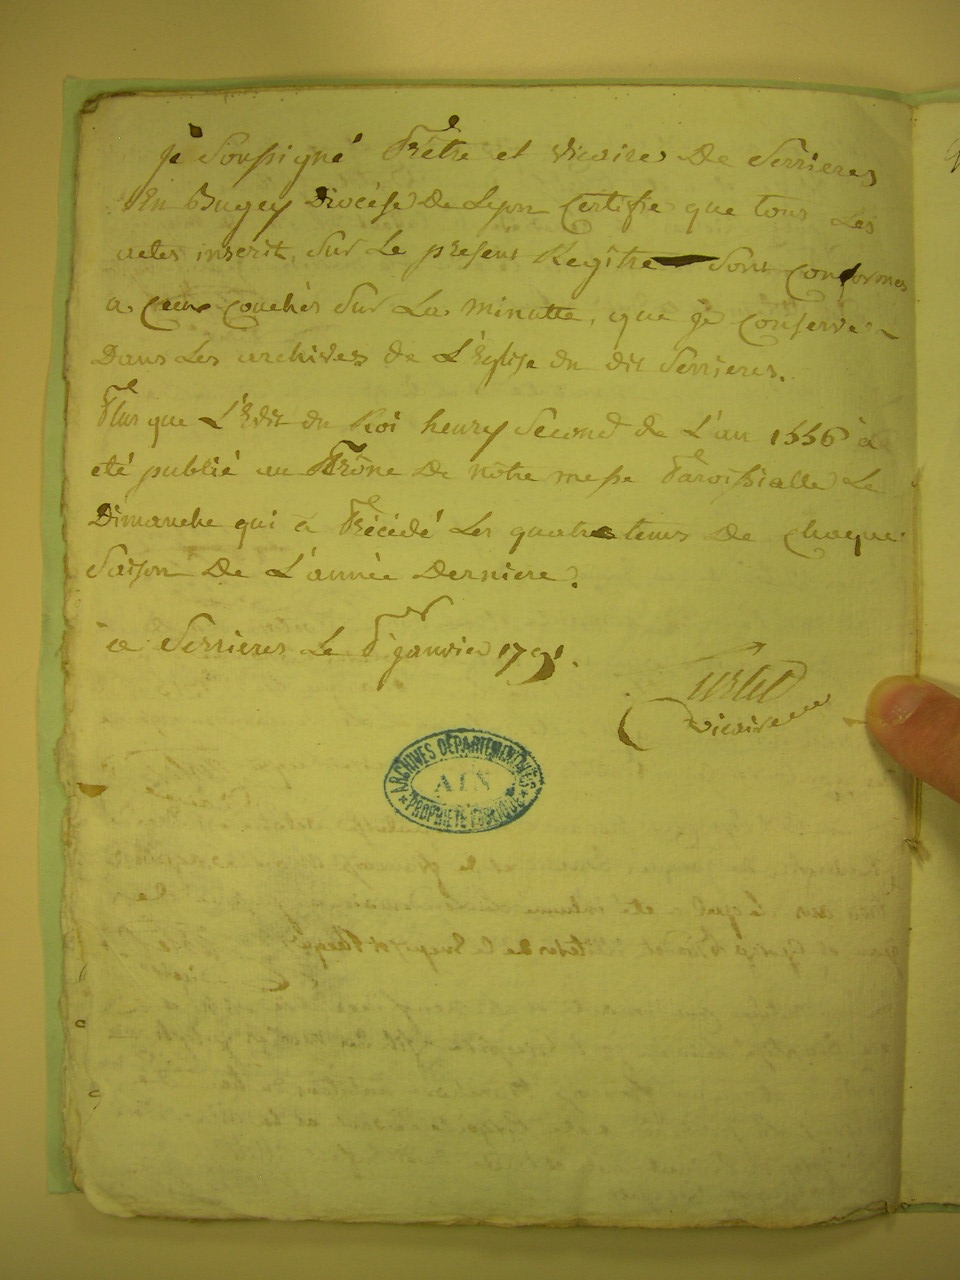 je soussigné Prêtre et vicaire De Serrieres
En Bugey Diocése De Lyon Certifie que tous Les
actes inscrit, sur Le present Regître sont conformes
a ceux couchés sur La minutte, que je conserve
Dans Les archives de L'Eglise du dit Serrieres.
Plus que L'Edit du Roi henry Second de L'an 1556 à
eté publié au Prône De nôtre messe Paroissialle Le
Dimanche qui à Précédé Les quatre tems De chaque
Saison De L'année Derniere.
a Serrieres Le janvier 1791.
vicaire
ARCHIVES DÉPARTEMENTALES
AIN
PROPRIÉTÉ PUBLIQUE